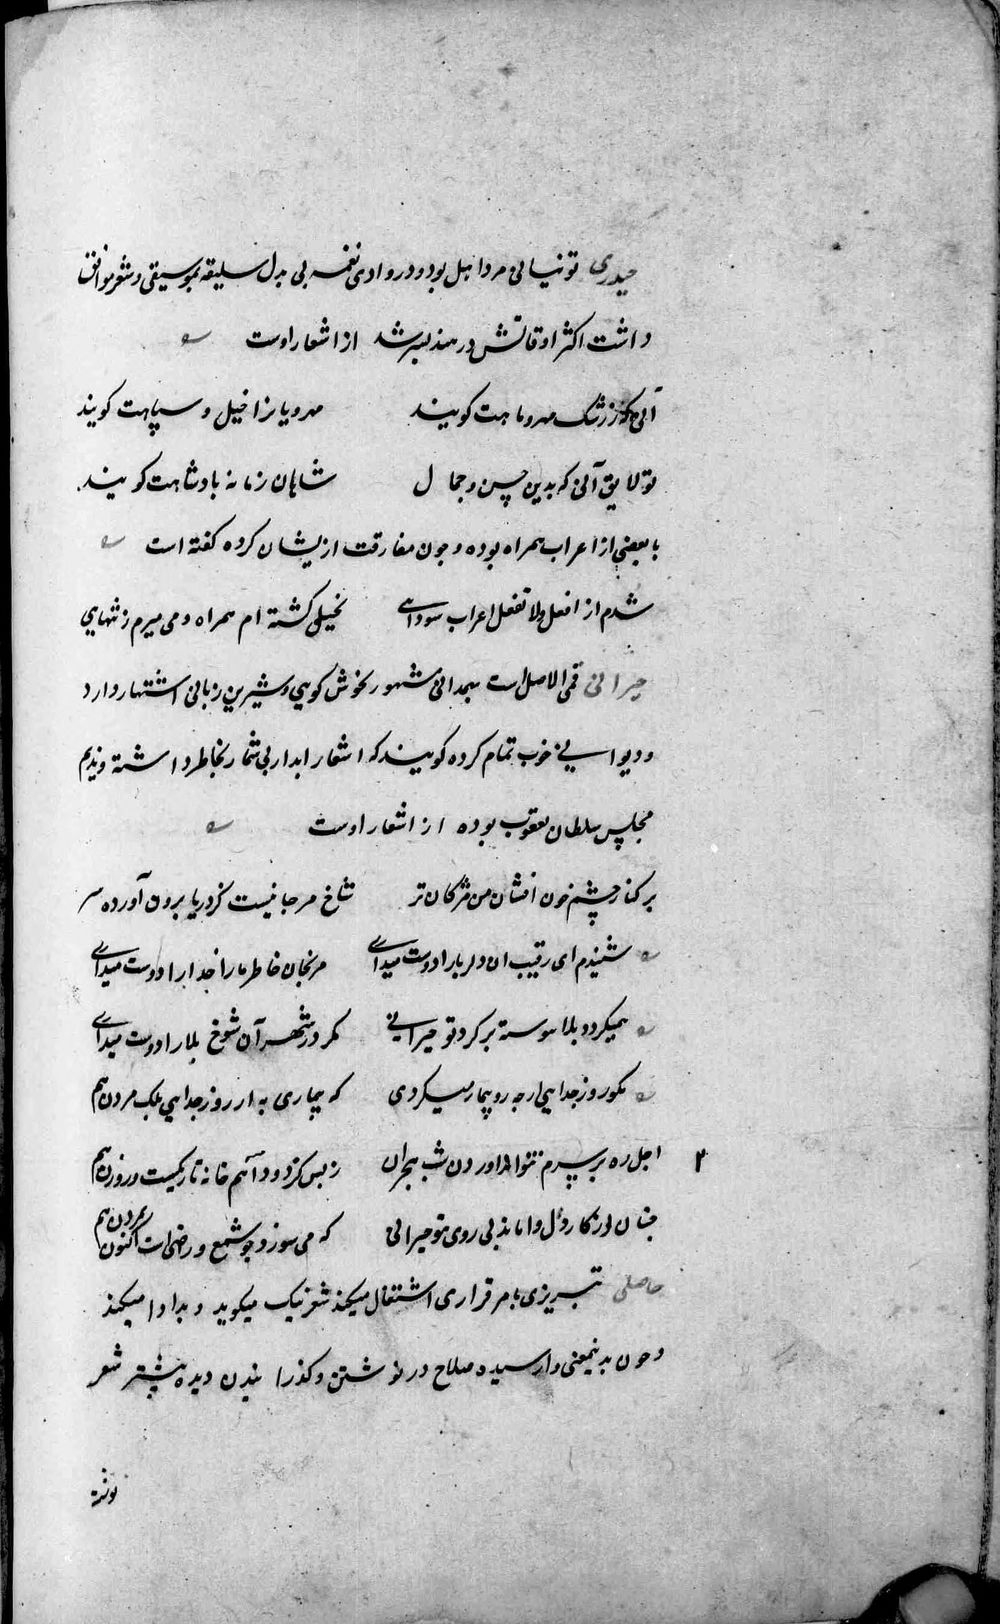 حیدری تونیانی مرد اهل بود و در وادی نغمه بی بدل سلیقه بموسیقی و شعر موافق
داشت اکثر اوقاتش در هند بسر شد از اشعار اوست
آنی که ز رشک مهر و ماهت گویند مه رویانرا خیل و سپاهت گویند
تو لایق آنی که بدین حسن و جمال شاهان زمانه پادشاهت گویند
با بعضی از اعراب همراه بوده و چون مفارقت ازیشان کرده گفته است
شدم از افعل و لا تفعل اعراب سودایی بخیلی گشته ام همراه و می میرم ز تنهایی
حیرانی قمی الاصل است بهمدانی مشهور بخوش گویی و شیرین زبانی اشتهار دارد
و دیوانی خوب تمام کرده گویند که اشعار ابدار بی شمار بخاطر داشته و ندیم
مجلس سلطان یعقوب بوده از اشعار اوست
بر کنار چشم خون افشان من مژکان تر شاخ مرجانیست کز دریا برون آورده سر
شنیدم ای رقیب ان دلربا را دوست میداری مرنجان خاطر ما را خدا را دوست میداری
همیگردد بلا پیوسته بر گرد تو حیرانی مگر در شهر آن شوخ بلا را دوست میداری
مگو روز جدایی از چه رو بیمار میگردی که بیماری به از روز جدایی بلک مردن هم
۲ اجل ره بر سرم نتواند آوردن شب هجران ز بس کز دود آهم خانه تاریکست و روزن هم
چنان از کار دل واماند بی روی تو حیرانی که می سوزد چو شمع و راضی است اکنون بمردن هم
حاصلی تبریزی بامر قراری اشتغال میکند شعر نیک میگوید و بد ادا میکند
و چون بدینمعنی وارسیده صلاح در نوشتن و گذرانیدن دیده بیشتر شعر
نوشته